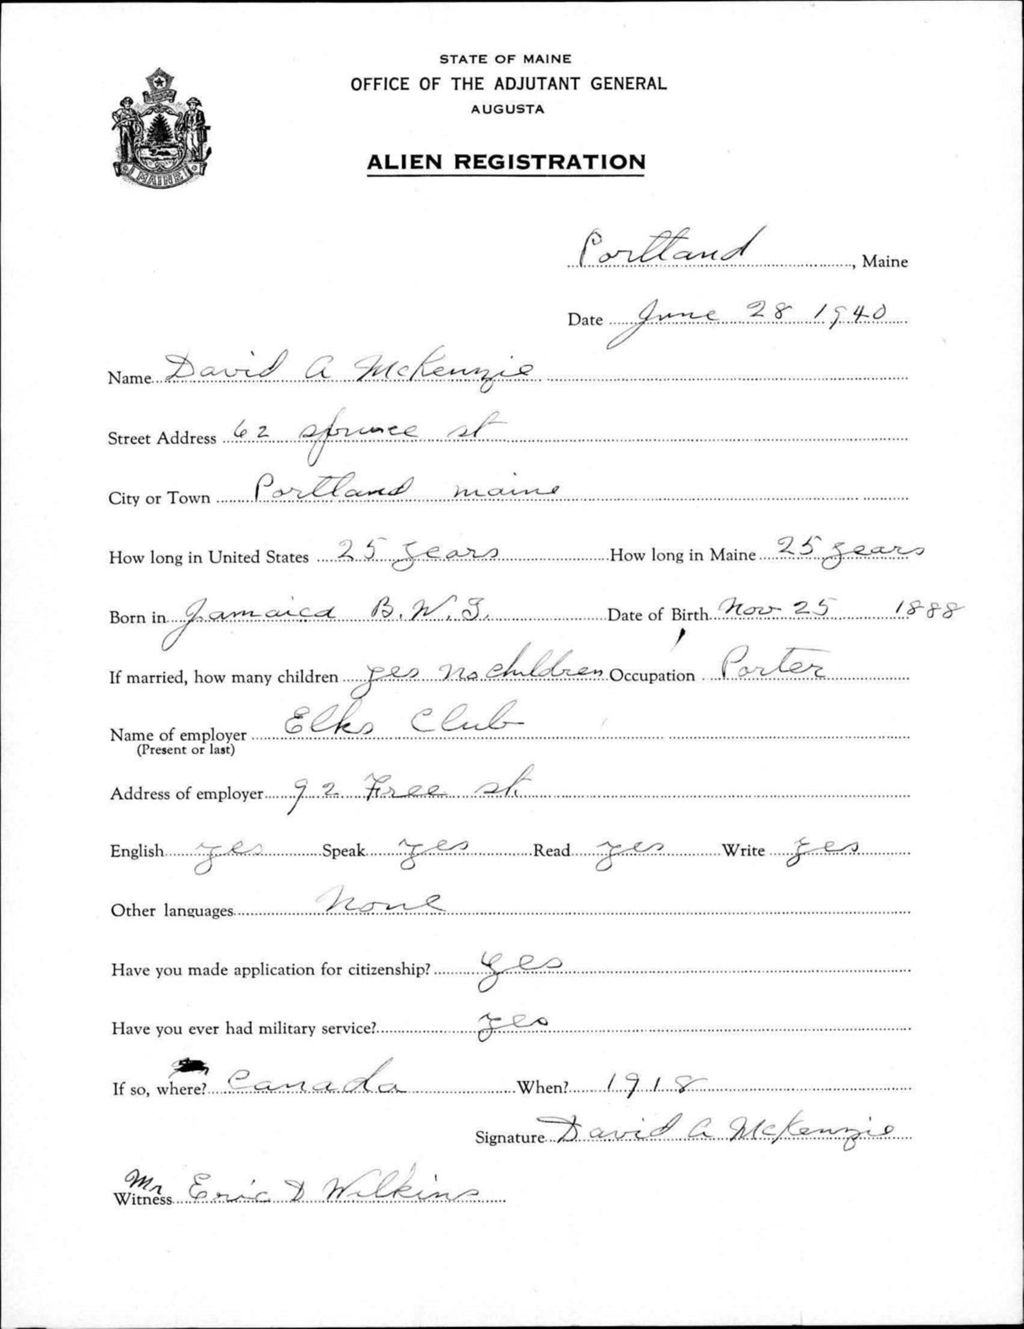 STATE OF MAINE
OFFICE OF THE ADJUTANT GENERAL
AUGUSTA
ALIEN REGISTRATION
MAINE
Portland, Maine
Date June 28 1940
Name David A McKenzie
Street Address 62 spruce st
City or Town Portland maine
How long in United States 25 years How long in Maine 25 years
Born in Jamaica B.W.I. Date of Birth Nov 25 1888
If married, how many children yes no children Occupation Porter
Name of employer Elks Club
(Present or last)
Address of employer 92 Free st.
English yes Speak yes Read yes Write yes
Other languages None
Have you made application for citizenship? yes
Have you ever had military service? yes
If so, where? Canada When? 1918
Signature David A McKenzie
Mr
Witness Eric D Wilkins